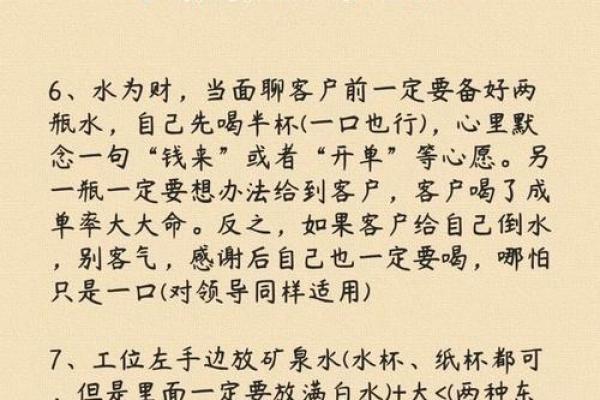 6、水为财，当面聊客户前一定要备好两
瓶水，自己先喝半杯(一口也行)，心里默
念一句“钱来”或者“开单”等心愿。另
一瓶一定要想办法给到客户，客户喝了成
单率大大命。反之，如果客户给自己倒水
，别客气，感谢后自己也一定要喝，哪怕
只是一口(对领导同样适用)
7、工位左手边放矿泉水(水杯、纸杯都可
，但是里面一定要放满白水)+大<(两种东